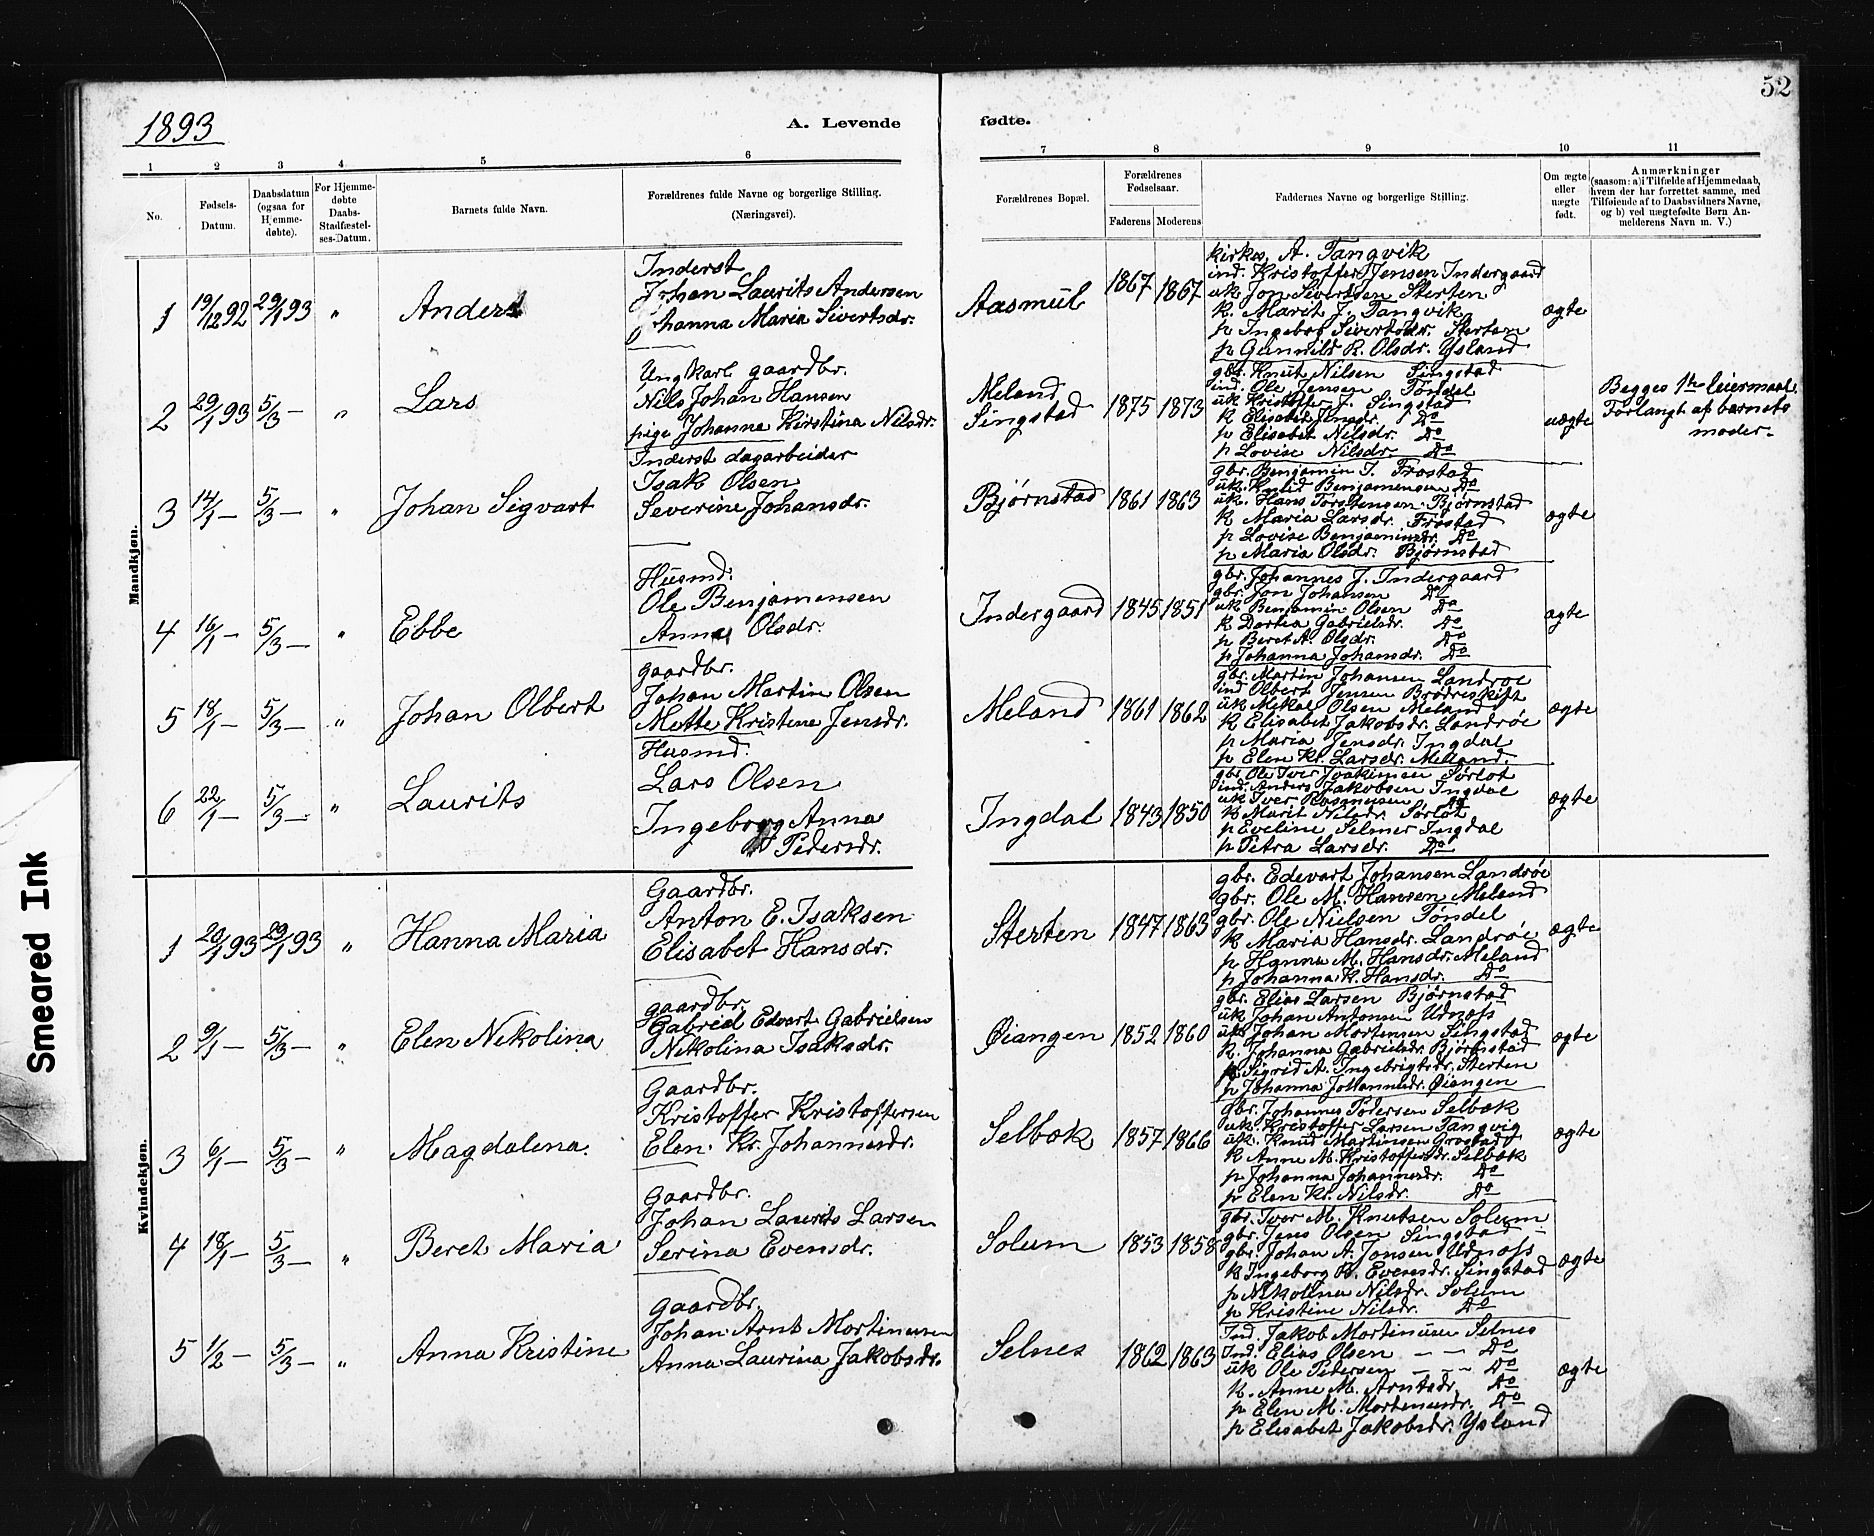 52
1893
A. Levende fødte.
1 2 3 4 5 6 7 8 9 10 11
No.
Fødsels-
Datum.
Daabsdatum
(ogsaa for
Hjemme-
døbte).
For Hjemme-
døbte
Daabs-
Stadfæstel-
ses-Datum.
Barnets fulde Navn.
Forældrenes fulde Navne og borgerlige Stilling.
(Næringsvei).
Forældrenes Bopæl.
Forældrenes
Fødselsaar.
Faderens Moderens
Faddernes Navne og borgerlige Stilling.
Om ægte
eller
nægte
født.
Anmærkninger
(saasom: a) i Tilfælde af Hjemmedaab,
hvem der har forrettet samme, med
Tilføiende af to Daabsvidners Navne,
og b) ved uægtefødte Børn An-
melderens Navn m. V.)
Mandkjøn.
1 19/12 92 29/1 93 " Anders
Inderst
Johan Laurits Andersen
Johanna Maria Sivertsdr.
Aasmul 1867 1867
kirkes. A. Tangvik
ind. Kristoffer Jensen Indergaard
uk Jon Sivertsen Sterten
k. Marit J. Tangvik
p Ingebor Sivertsdr. Sterten
p Gunnild R. Olsdr. Ysland
ægte
2 29/1 93 5/3 — " Lars
Ungkarl gaardbr.
Nils Johan Hansen
pige Johanna Kirstina Nilsdr.
Meland
Singstad 1875 1873
gbr. Knut Nilsen Singstad
ind. Ole Jensen Tøndel
uk Kristoffer J. Singstad
k Elisabet Jensdr. Do
p Elisabet Nilsdr. Do
p Lovise Nilsdr. Do
uægte
Begges 1ste leiermaal.
Forlangt af barnets
moder.
3 14/1 — 5/3 — " Johan Sigvart
Inderst dagarbeider
Isak Olsen
Severine Johansdr.
Bjørnstad 1861 1863
gbr. Benjamin J. Frostad
uk. Knud Benjaminsen Do
uk. Hans Torstensen Bjørnstad
k Maria Larsdr. Frostad
p Lovise Benjaminsdr. Do
p Maria Olsdr. Bjørnstad
ægte
4 16/1 — 5/3 — " Ebbe
Husmd.
Ole Benjamensen
Anne Olsdr.
Indergaard 1845 1851
gbr. Johannes J. Indergaard
gbr. Jon Johansen Do
uk Benjamin Olsen Do
k Dortea Gabrielsdr. Do
p Beret A. Olsdr. Do
p Johanna Johansdr. Do
ægte
5 18/1 — 5/3 — " Johan Olbert
gaardbr.
Johan Martin Olsen
Mette Kristine Jensdr.
Meland 1861 1862
gbr. Martin Johansen Landrøe
ind Olbert Jensen Brødreskift
uk Mikal Olsen Meland
k Elisabet Jakobsdr. Landrøe
p Maria Jensdr. Ingdal
p Elen Kr. Larsdr. Meland.
ægte
6 22/1 — 5/3 — " Laurits
Husmd.
Lars Olsen
Ingeborg Anna
Pedersdr.
Ingdal 1843 1850
gbr. Ole Iver Joakimsen Sørlot
ind. Anders Jakobsen Ingdal
uk Iver Rasmusen Do
k Marit Nilsdr. Sørlot
p Eveline Selmer Ingdal
p Petra Larsdr. Do
ægte
Kvindekjøn.
1 20/1 93 29/1 93 " Hanna Maria
Gaardbr.
Anton E. Isaksen
Elisabet Hansdr.
Sterten 1847 1863
gbr. Edevart Johansen Landrøe
gbr. Ole M. Hansen Meland
gbr. Ole Nielsen Tøndel
k Maria Hansdr. Landrøe
p Hanna M. Hansdr. Meland
p Johanna K. Hansdr. Do
ægte
2 9/1 — 5/3 — " Elen Nekolina
gaardbr.
Gabriel Edvart Gabrielsen
Nikolina Isaksdr.
Øiangen 1852 1860
gbr. Elias Larsen Bjørnstad
uk Johan Antonsen Udnøss
uk Johan Mortensen Singstad
k. Johanna Gabrielsdr. Bjørnstad
p Sigrid A. Ingebrigtsdr. Sterten
p Johanna Johannesdr. Øiangen
ægte
3 6/1 — 5/3 — " Magdalena.
Gaardbr.
Kristoffer Kristoffersen
Elen. Kr. Johannesdr.
Selbæk 1857 1866
gbr. Johannes Pedersen Selbæk
uk. Kristoffer Larsen Tangvig
uk. Knud Martinsen Grostad
k Anne M. Kristoffersdr. Selbæk
p Johanna Johannesdr. Do
p Elen Kr. Nilsdr. Do
ægte
4 18/1 — 5/3 — " Beret Maria
Gaardbr.
Johan Laurits Larsen
Serina Evensdr.
Solum 1853 1858
gbr. Iver M. Knutsen Solum
gbr. Jens Olsen Singstad
gbr. Johan A. Jonsen Udnøss
k Ingeborg R. Evensdr. Singstad
p Nekolina Nilsdr. Solum
p Kristine Nilsdr. Do
ægte
5 1/2 — 5/3 — " Anna Kristine
gaardbr.
Johan Arnt Mortinusen
Anna Laurina Jakobsdr.
Selnes 1862 1863
Ind. Jakob Mortinusen Selnes
Ind. Elias Olsen — — Do
uk Ole Pedersen — — Do
k. Anne M. Arntsdr. Do
p Elen M. Mortenusdr. Do
p Elisabet Jakobsdr. Ysland
ægte
Smeared Ink